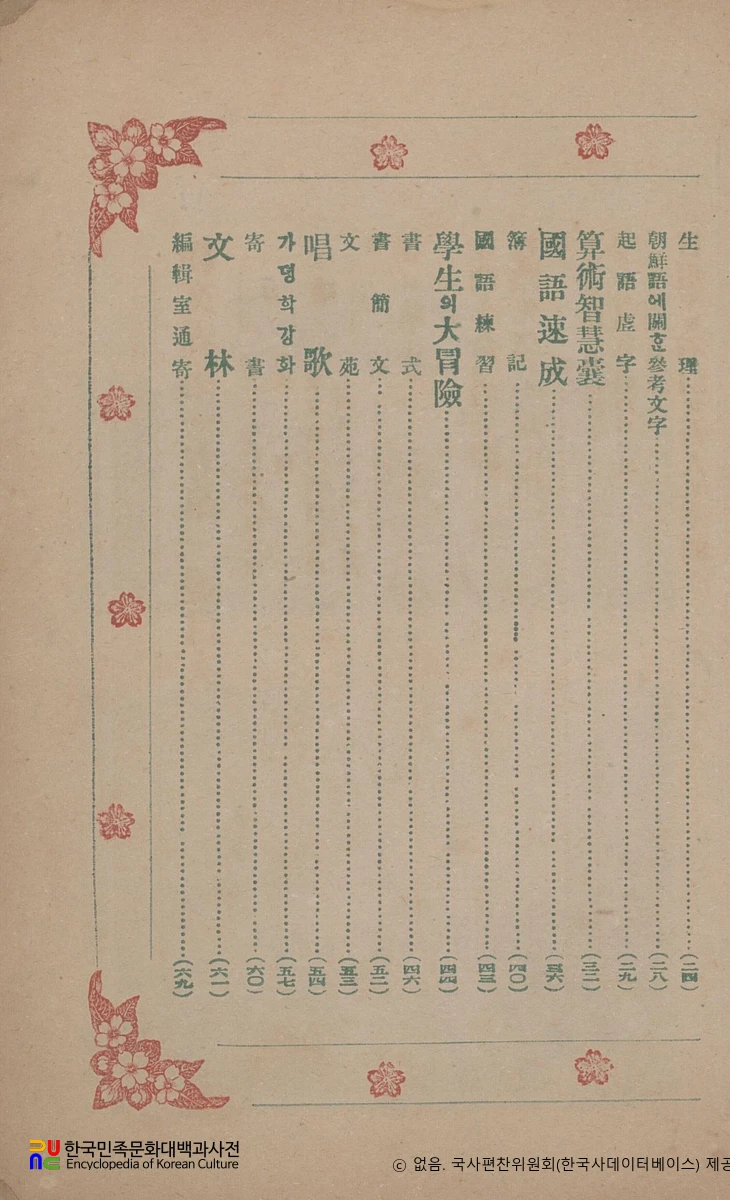 生理(二四)
朝鮮語에關ᄒᆞᆫ參考文字(二八)
起語虛字(二九)
算術智慧囊(三二)
國語速成(三六)
簿記(四〇)
國語練習(四三)
學生의大冒險(四四)
書式(四六)
書簡文(五二)
文苑(五三)
唱歌(五四)
가뎡학강화(五七)
寄書(六〇)
文林(六一)
編輯室通寄(六九)
한국민족문화대백과사전
Encyclopedia of Korean Culture
© 없음. 국사편찬위원회(한국사데이터베이스) 제공